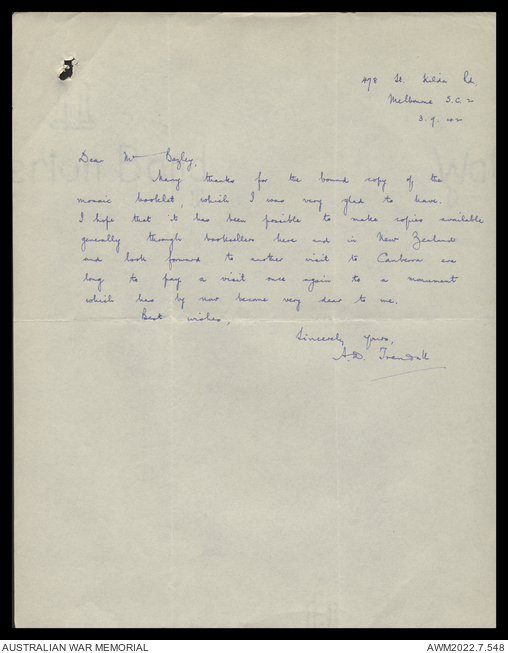 478 St. Kilda Rd.
Melbourne S.C.2
3.9.42
Dear Mr Bazley,
Many thanks for the bound copy of the
mosaic booklet, which I was very glad to have.
I hope that it has been possible to make copies available
generally through booksellers here and in New Zealand
and look forward to another visit to Canberra ere
long to pay a visit once again to a monument
which has by now become very dear to me.
Best wishes,
Sincerely yours,
A.D. Trendall
AUSTRALIAN WAR MEMORIAL
AWM2022.7.548